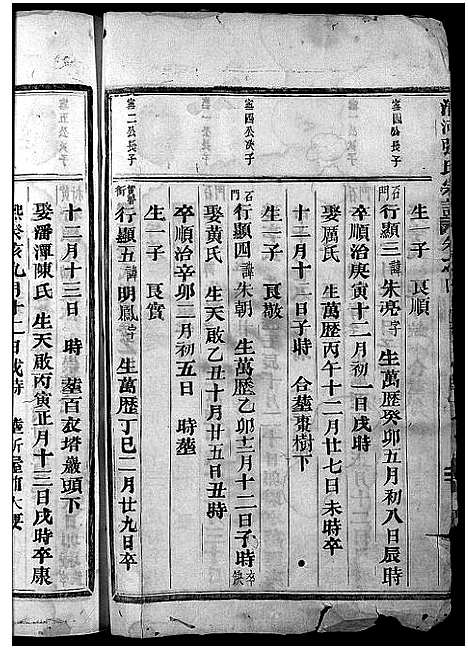 生一子 良順
寔四公長子
石門 行顯三 諱 朱亮 字 生萬歷癸卯五月初八日辰時
卒順治庚寅十二月初一日戌時
娶厲氏 生萬歷丙午十二月廿七日未時卒
十二月十二日子時 合塟棗樹下
生一子 良敬
寔四公次子
石門 行顯四 諱 朱朝 生萬歷乙卯十二月十二日子時 卒缺
娶黃氏 生天啟乙丑十月廿五日丑時
卒順治辛卯二月初五日 時塟
生一子 良賞
寔二公長子
行顯五 諱 明鳳 生萬歷丁巳二月廿九日卒
十二月十三日 時 塟百衣塔巖頭下
娶潘潭陳氏 生天啟丙寅正月十三日戌時卒康
熙癸亥九月十二日戌時
寔五公次子